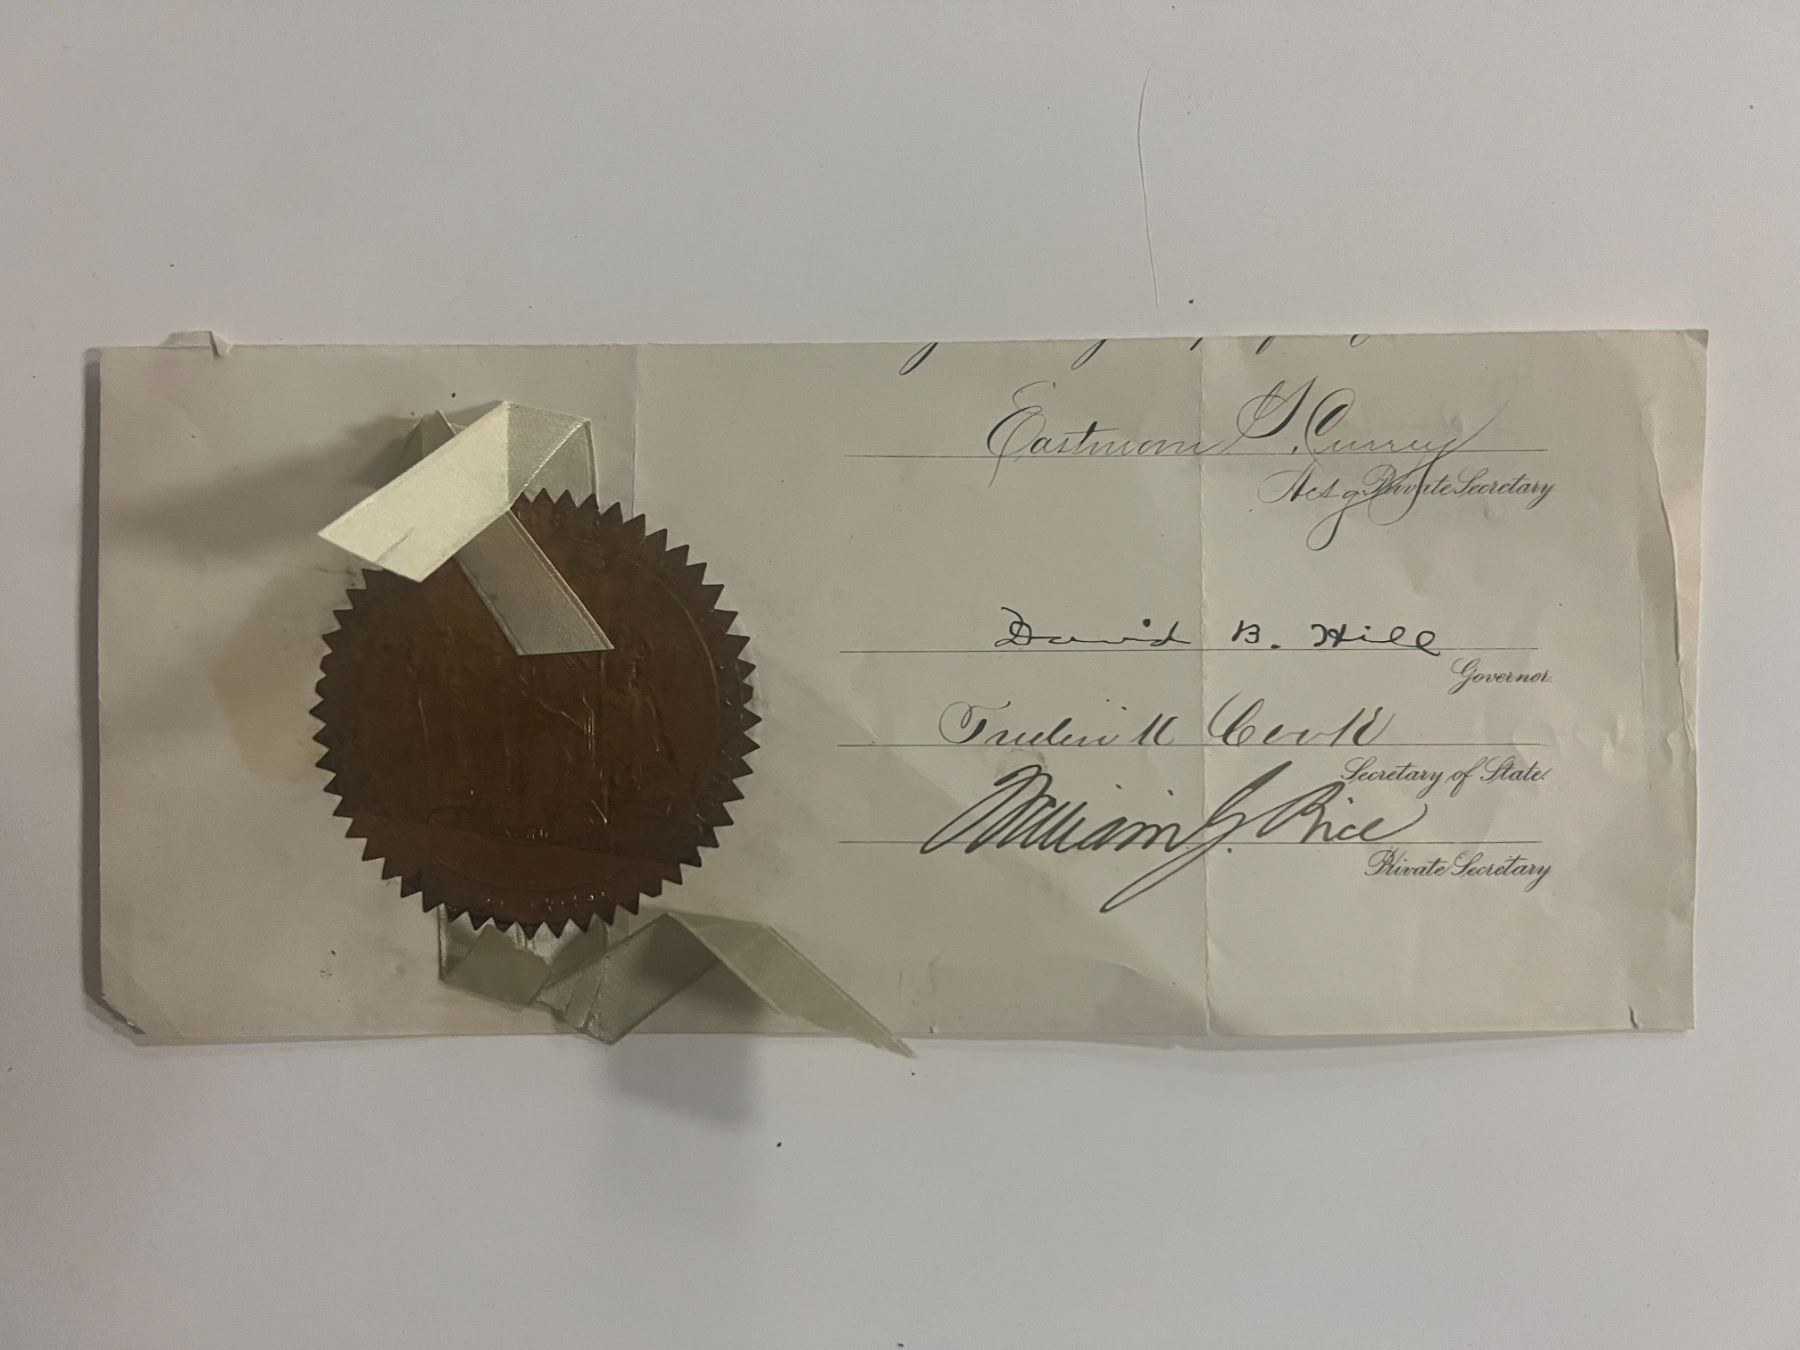 Eastmom G. Currey
Act'g Private Secretary
David B. Hill
Governor.
Frederick Cook
Secretary of State.
William G. Rice
Private Secretary